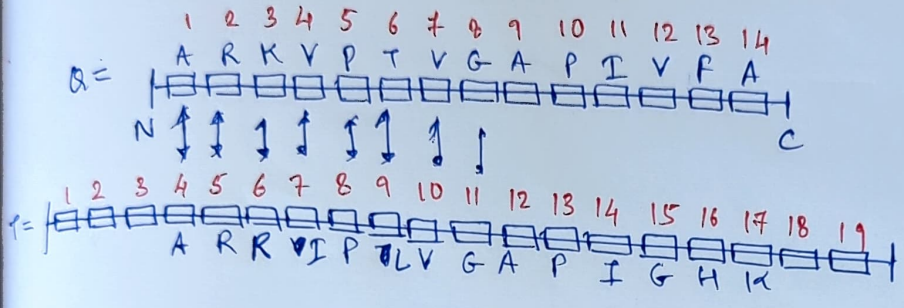 1 2 3 4 5 6 7 8 9 10 11 12 13 14
A R K V P T V G A P I V F A
Q =
N C
1 2 3 4 5 6 7 8 9 10 11 12 13 14 15 16 17 18 19
=
A R R I P L V G A P I G H K